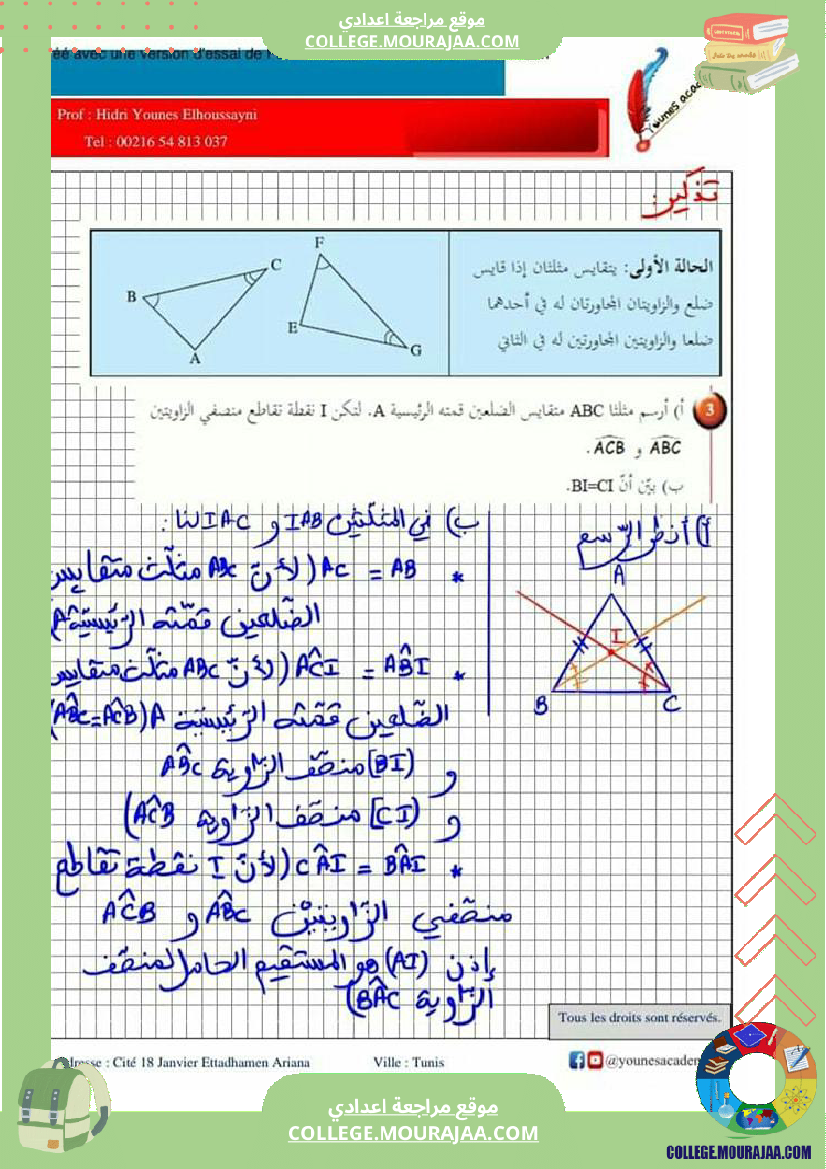 موقع مراجعة اعدادي
COLLEGE.MOURAJAA.COM
éé avec une version d'essai de
Prof : Hidri Younes Elhoussayni
Tel : 00216 54 813 037
YOUNES ACA
تذكير:
الحالة الأولى: يتقايس مثلثان إذا قايس
ضلع والزاويتان المجاورتان له في أحدهما
ضلعا والزاويتين المجاورتين له في الثاني
F
C
B
E
G
A
3
أ) أرسم مثلثا ABC متقايس الضلعين قمته الرئيسية A. لتكن I نقطة تقاطع منصفي الزاويتين
ABC و ACB .
ب) بيّن أنّ BI=CI.
أ) أنظر الرّسم
A
I
B
C
ب) في المثلّثين IAB و IAC لنا:
* AB = AC (لأنّ ABC مثلّث متقايس
الضّلعين قمّته الرّئيسيّة A)
* AB̂I = AĈI (لأنّ ABC مثلّث متقايس
الضّلعين قمّته الرّئيسيّة A (AB̂C=AĈB)
و [BI) منصّف الزّاوية AB̂C
و [CI) منصّف الزّاوية AĈB)
* BÂI = CÂI (لأنّ I نقطة تقاطع
منصّفي الزّاويتين AB̂C و AĈB
إذن (AI) هو المستقيم الحامل لمنصّف
الزّاوية BÂC)
Tous les droits sont réservés.
dresse : Cité 18 Janvier Ettadhamen Ariana
Ville : Tunis
@younesacadem
موقع مراجعة اعدادي
COLLEGE.MOURAJAA.COM
COLLEGE.MOURAJAA.COM